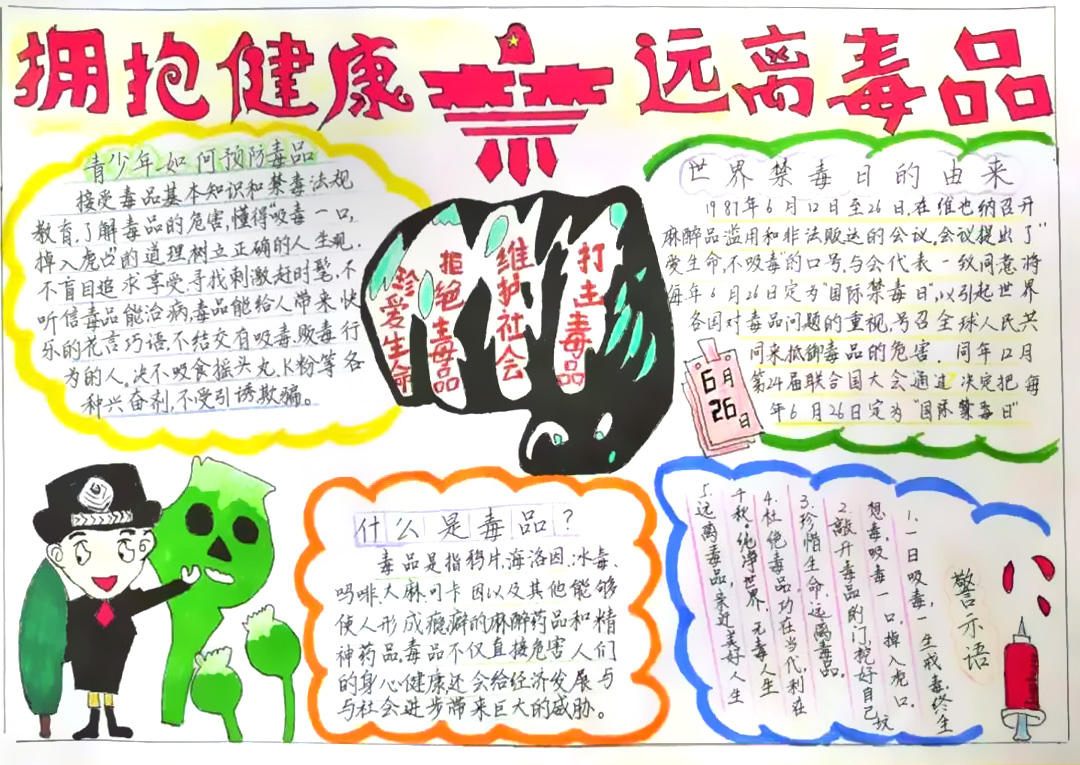 拥抱健康
禁
远离毒品
青少年如何预防毒品
接受毒品基本知识和禁毒法规
教育,了解毒品的危害,懂得"吸毒一口,
掉入虎口"的道理树立正确的人生观,
不盲目追求享受寻找刺激赶时髦,不
听信毒品能治病,毒品能给人带来快
乐的花言巧语,不结交有吸毒,贩毒行
为的人。决不吸食摇头丸、K粉等各
种兴奋剂,不受引诱欺骗。
珍爱生命
拒绝毒品
维护社会
打土毒品
世界禁毒日的由来
1987年6月12日至26日,在维也纳召开
麻醉品滥用和非法贩运的会议,会议提出了"
爱生命,不吸毒"的口号,与会代表一致同意,将
每年6月26日定为"国际禁毒日",以引起世界
各国对毒品问题的重视,号召全球人民共
同来抵御毒品的危害。同年12月
第24届联合国大会通过决定把每
年6月26日定为"国际禁毒日"
6月
26日
什么是毒品?
毒品是指鸦片,海洛因,冰毒、
吗啡、大麻、可卡因以及其他能够
使人形成瘾癖的麻醉药品和精
神药品,毒品不仅直接危害人们
的身心健康还会给经济发展与
与社会进步带来巨大的威胁。
警示语
1.一日吸毒,一生戒毒,终生
想毒,吸毒一口,掉入虎口。
2.敲开毒品的门,挖好自己坑
3.珍惜生命,远离毒品。
4.杜绝毒品功在当代,利在
千秋。纯净世界,无毒人生
5.远离毒品,亲近美好人生